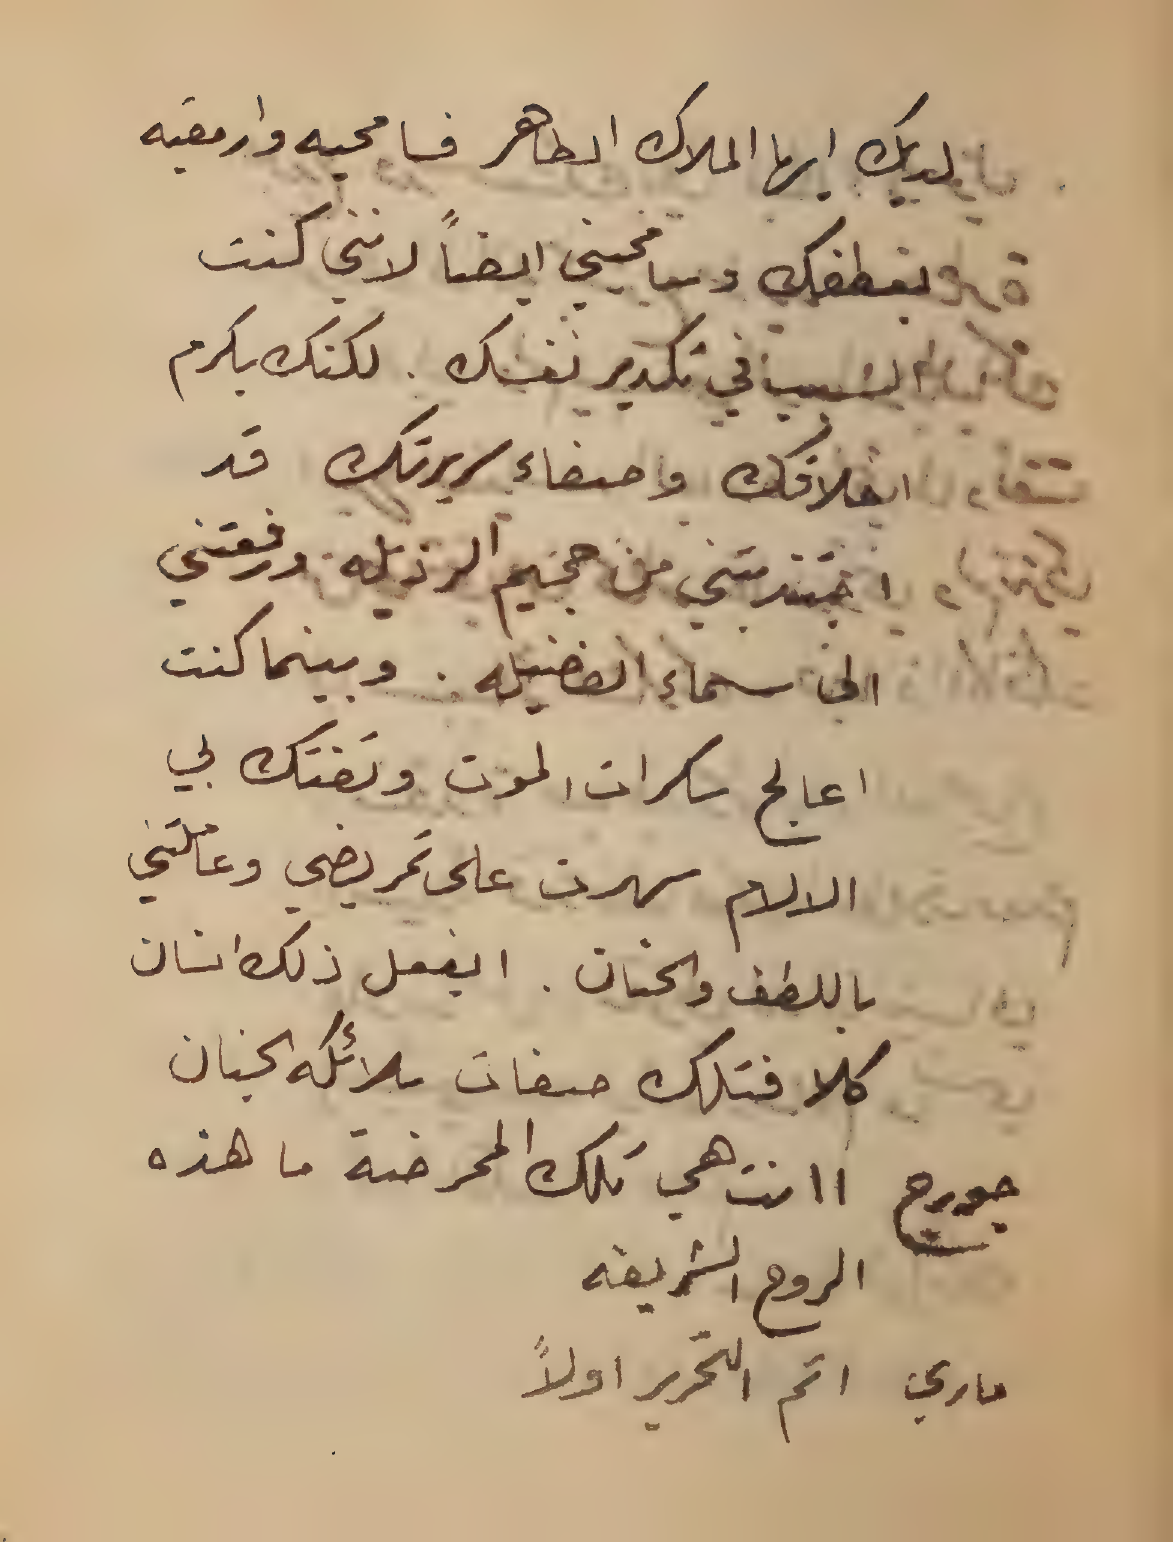 لديك ايها الملاك الطاهر فسامحيه وارمقيه
بعطفك وسامحيني ايضاً لانني كنت
السبب في تكدير نفسك . لكنك بكرم
اخلاقك وصفاء سريرتك قد
اجتذبتني من جحيم الرذيله ورفعتني
الى سماء الفضيله . وبينما كنت
اعالج سكرات الموت وتفتك بي
الالام سهرت على تمريضي وعاملتني
باللطف والحنان . ايفعل ذلك انسان
كلا فتلك صفات ملائكه الجنان
جورج اانت هي تلك الممرضة ما هذه
الروح الشريفه
ماري اتم التحرير اولاً